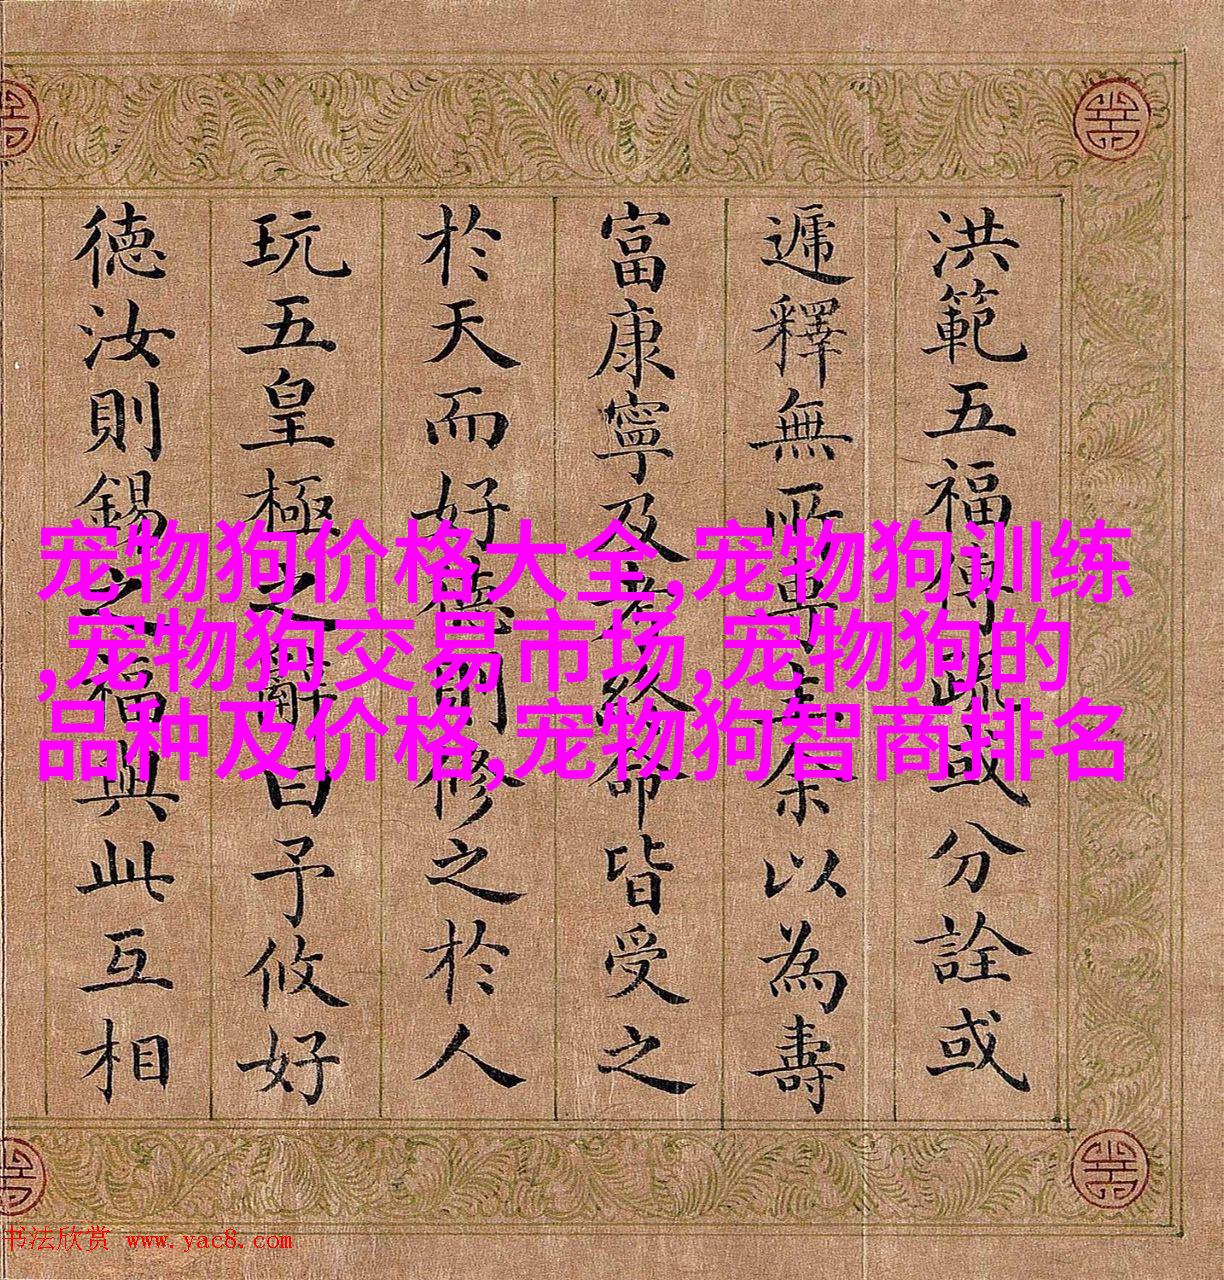 洪範五福傳疏或分詮或
遞釋無所專主余以為壽
富康寧及考終命皆受之
於天而好德則修之於人
玩五皇極之辭曰予攸好
德汝則錫之福與此互相
宠物狗价格大全,宠物狗训练
,宠物狗交易市场,宠物狗的
品种及价格,宠物狗智商排名
书法欣赏 www.yac8.com